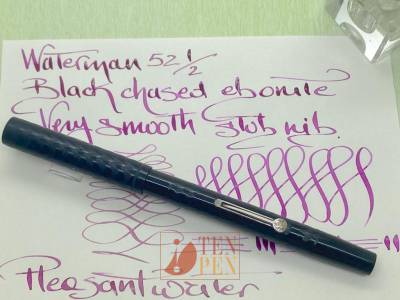 Waterman 52 1/2
Black chased ebonite
Very smooth stub nib.
TEN
PEN
Pleasant writer